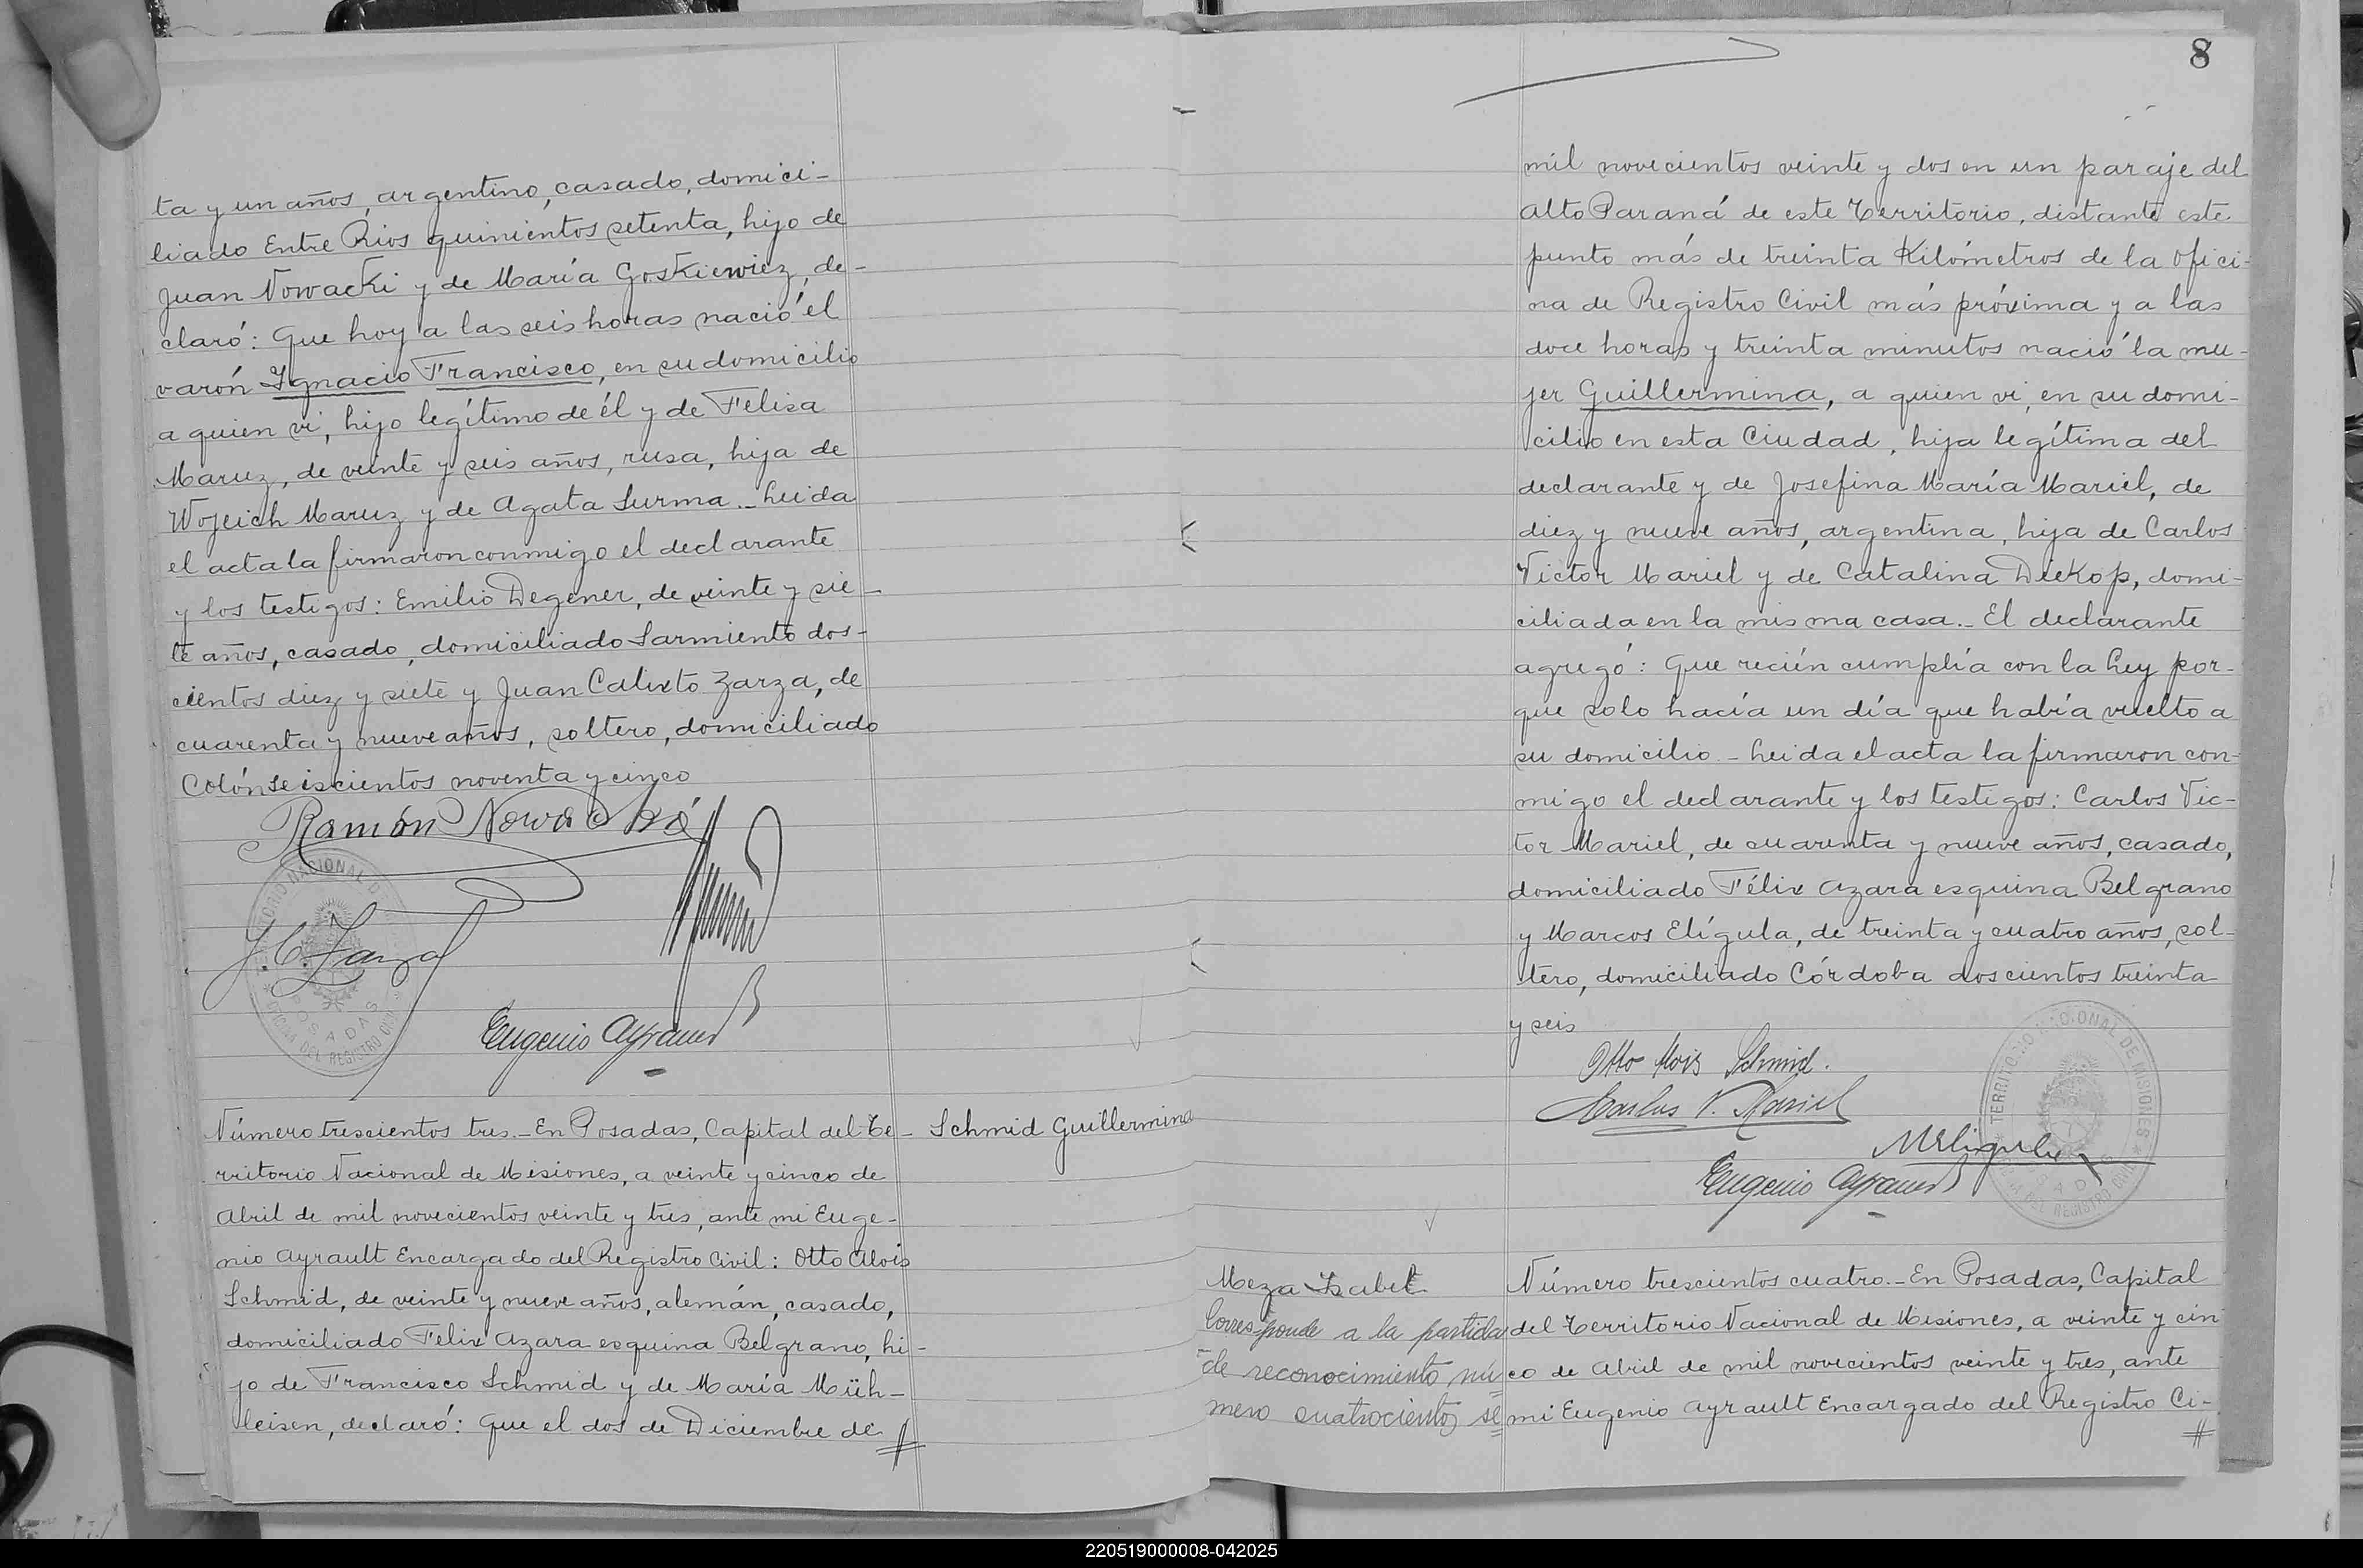 ta y un años, argentino, casado, domici-
liado Entre Rios quinientos setenta, hijo de
Juan Nowacki y de María Goskiewiez, de-
claró: Que hoy a las seis horas nació el
varón Ignacio Francisco, en su domicilio
a quien vi, hijo legítimo de él y de Felisa
Maruz, de veinte y seis años, rusa, hija de
Wojeich Maruz y de Agata Surma._ Leida
el acta la firmaron conmigo el declarante
y los testigos: Emilio Degener, de veinte y sie-
te años, casado, domiciliado Sarmiento dos-
cientos diez y siete y Juan Calixto Zarza, de
cuarenta y nueve años, soltero, domiciliado
Colón seiscientos noventa y cinco
Ramón Nowacki
TERRITORIO NACIONAL DE
POSADAS
OFICINA DEL REGISTRO CIVIL
J. C. Zarza
Eugenio Ayrault
Número trescientos tres._ En Posadas, Capital del Te-
Schmid Guillermina
rritorio Nacional de Misiones, a veinte y cinco de
Abril de mil novecientos veinte y tres, ante mi Euge-
nio Ayrault Encargado del Registro Civil: Otto Alois
Schmid, de veinte y nueve años, alemán, casado,
domiciliado Felix Azara esquina Belgrano, hi-
jo de Francisco Schmid y de María Müh-
leisen, declaró: Que el dos de Diciembre de
8
mil novecientos veinte y dos en un paraje del
Alto Paraná de este Territorio, distante este
punto más de treinta Kilómetros de la Ofici-
na de Registro Civil más próxima y a las
doce horas y treinta minutos nació la mu-
jer Guillermina, a quien vi, en su domi-
cilio en esta Ciudad, hija legítima del
declarante y de Josefina María Mariel, de
diez y nueve años, argentina, hija de Carlos
Victor Mariel y de Catalina Diekop, domi-
ciliada en la misma casa._ El declarante
agregó: Que recién cumplía con la Ley por-
que solo hacía un día que había vuelto a
su domicilio - Leida el acta la firmaron con-
migo el declarante y los testigos: Carlos Vic-
tor Mariel, de cuarenta y nueve años, casado,
domiciliado Félix Azara esquina Belgrano
y Marcos Elígula, de treinta y cuatro años, sol-
tero, domiciliado Córdoba doscientos treinta
y seis
Otto Alois Schmid.
Carlos V. Mariel
TERRITORIO NACIONAL DE MISIONES
DEL REGISTRO CIVIL
MEligula
Eugenio Ayrault
Meza Isabel
Corresponde a la partida
de reconocimiento nú=
mero cuatrocientos se=
Número trescientos cuatro._ En Posadas, Capital
del Territorio Nacional de Misiones, a veinte y cin
co de Abril de mil novecientos veinte y tres, ante
mi Eugenio Ayrault Encargado del Registro Ci-
220519000008-042025